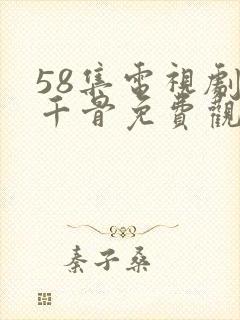 58集電視劇
千骨免費觀
秦子桑